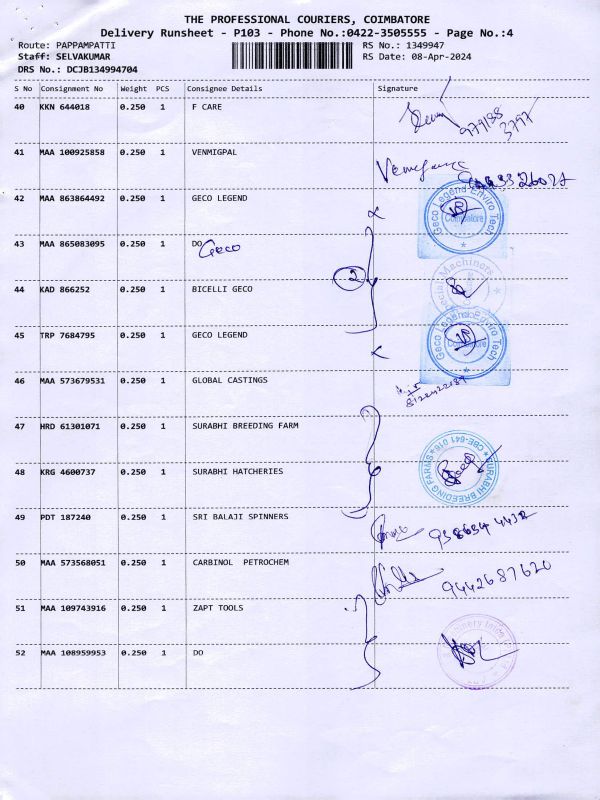 THE PROFESSIONAL COURIERS, COIMBATORE
Delivery Runsheet - P103 - Phone No.:0422-3505555 - Page No.:4
Route: PAPPAMPATTI RS No.: 1349947
Staff: SELVAKUMAR RS Date: 08-Apr-2024
DRS No.: DCJB134994704
S No Consignment No Weight PCS Consignee Details Signature
40 KKN 644018 0.250 1 F CARE
41 MAA 100925858 0.250 1 VENMIGPAL
42 MAA 863864492 0.250 1 GECO LEGEND
Geco Legend Enviro Tech
Coimbatore
43 MAA 865083095 0.250 1 DO Geco
2
44 KAD 866252 0.250 1 BICELLI GECO
45 TRP 7684795 0.250 1 GECO LEGEND
Geco Legend Enviro Tech
Coimbatore
46 MAA 573679531 0.250 1 GLOBAL CASTINGS
47 HRD 61301071 0.250 1 SURABHI BREEDING FARM
SURABHI BREEDING FARMS
CBE-641 016
48 KRG 4600737 0.250 1 SURABHI HATCHERIES
49 PDT 187240 0.250 1 SRI BALAJI SPINNERS
50 MAA 573568051 0.250 1 CARBINOL PETROCHEM 9442687620
51 MAA 109743916 0.250 1 ZAPT TOOLS
52 MAA 108959953 0.250 1 DO